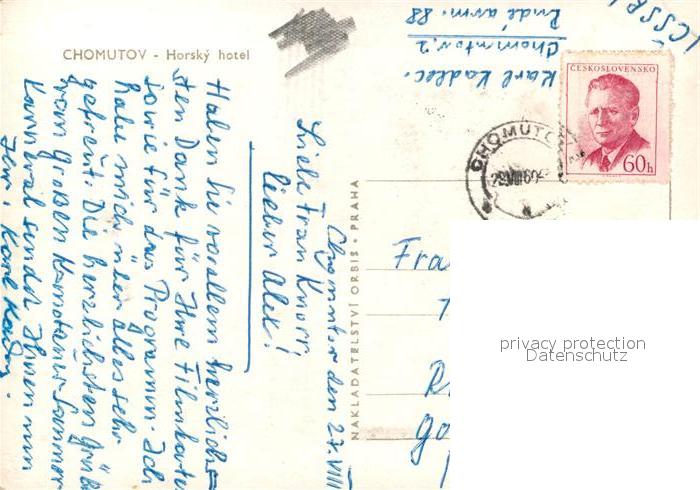 CHOMUTOV - Horský hotel
Karl Kadlec.
Chomutov 2
Rudé arm. 88
ČSSR
ČESKOSLOVENSKO
60h
CHOMUTOV
29.VIII.60
NAKLADATELSTVÍ ORBIS - PRAHA
Chomutov den 27. VIII
Liebe Frau Knorr
lieber Alex!
Haben Sie vorallem herzlich-
sten Dank für Ihre Filmkarte
sowie für das Programm. Ich
habe mich über alles sehr
gefreut. Die herzlichsten Grüße
vom Großen Komotauer Sommer
Karneval sendet Ihnen nun
Ihr Karl Kadlec.
Fra
privacy protection
Datenschutz